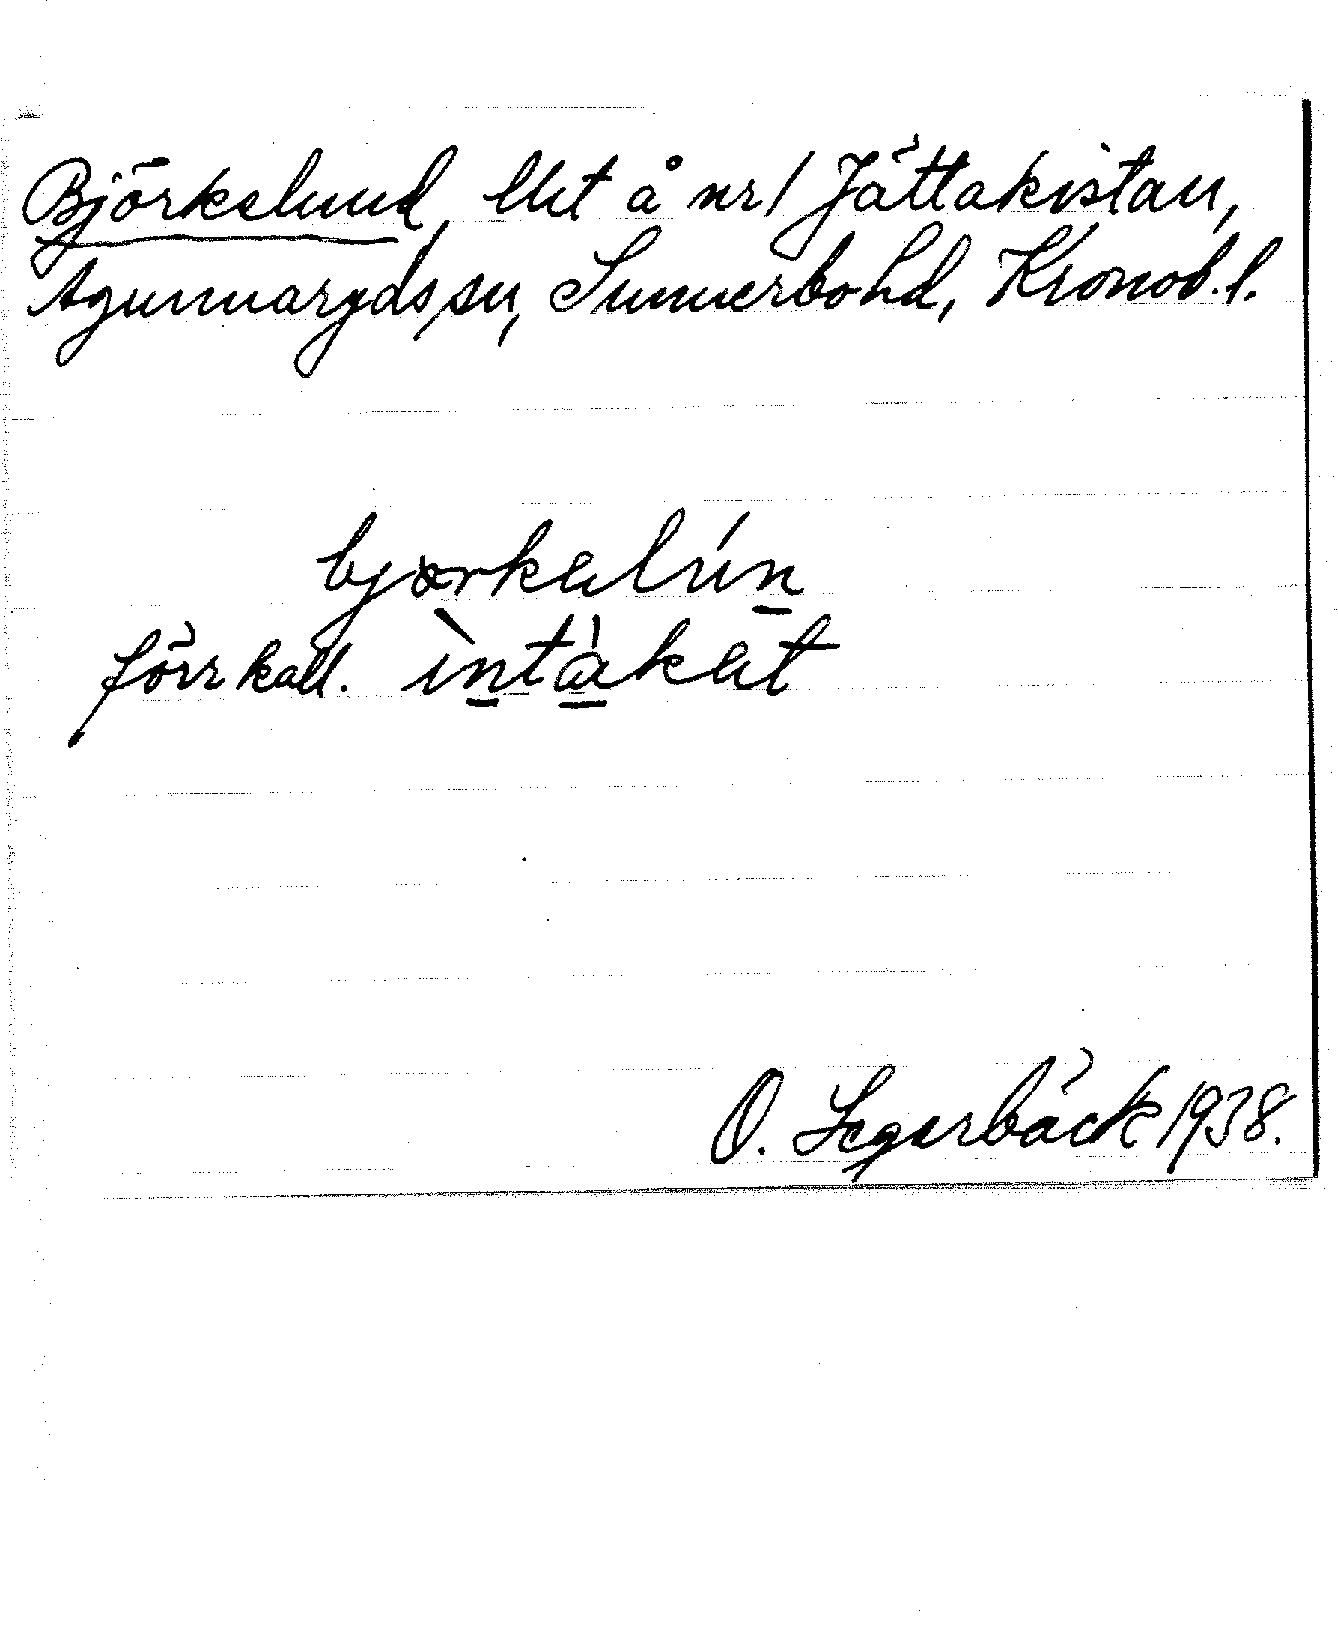 Björkelund, lht å nr 1 Jättakistan,
Agunnaryds sn, Sunnerbo hd, Kronob. l.
bjørkalún
förr kall. ìntàkat
O. Segerbäck 1938.